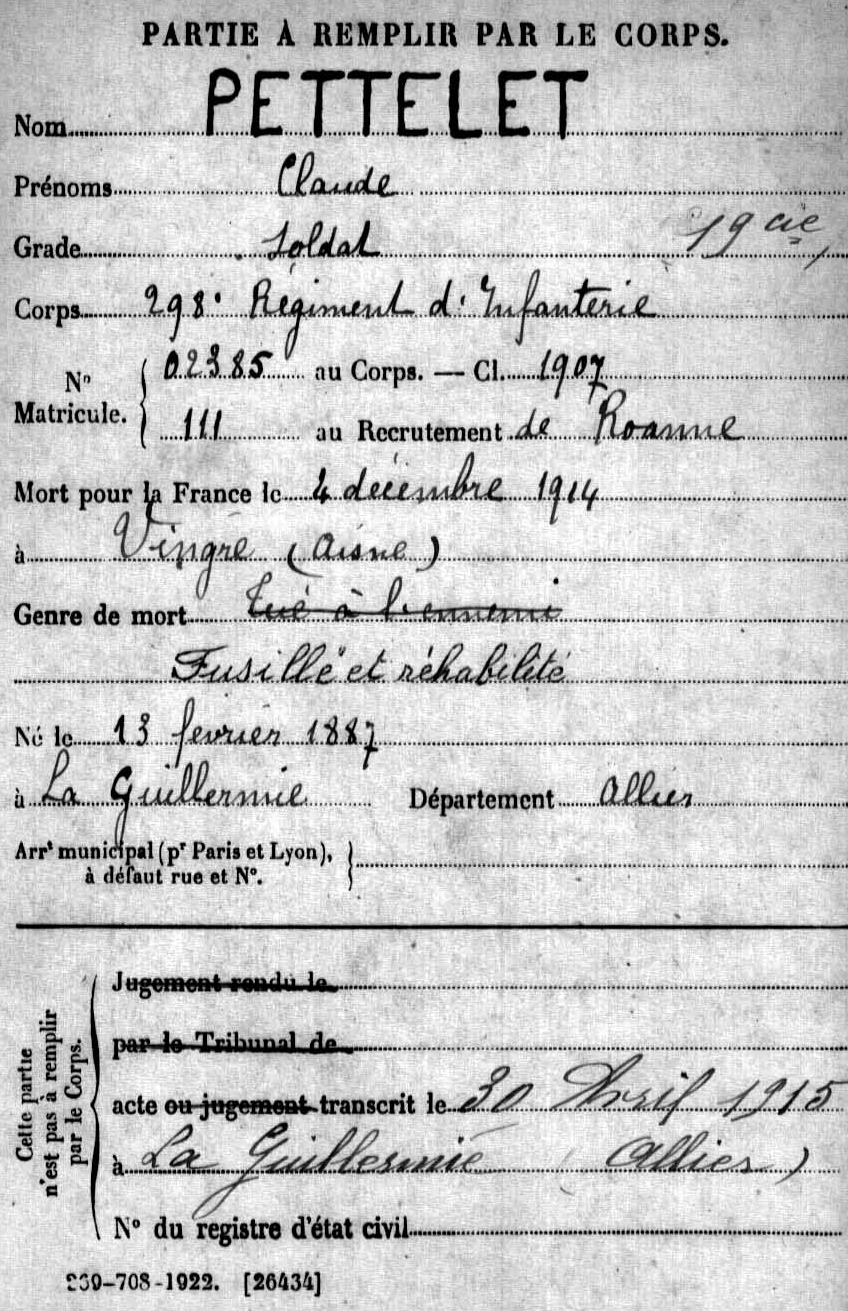 PARTIE À REMPLIR PAR LE CORPS.
Nom PETTELET
Prénoms Claude
Grade Soldat 19 cie
Corps 298e Régiment d'Infanterie
No Matricule. 02385 au Corps. — Cl. 1907
111 au Recrutement de Roanne
Mort pour la France le 4 décembre 1914
à Vingré (Aisne)
Genre de mort Tué à l'ennemi
Fusillé et réhabilité
Né le 13 février 1887
à La Guillermie Département Allier
Arrt municipal (pr Paris et Lyon),
à défaut rue et N°.
Cette partie
n'est pas à remplir
par le Corps.
Jugement rendu le
par le Tribunal de
acte ou jugement transcrit le 30 Avril 1915
à La Guillermie (Allier)
N° du registre d'état civil
269-708-1922. [26434]